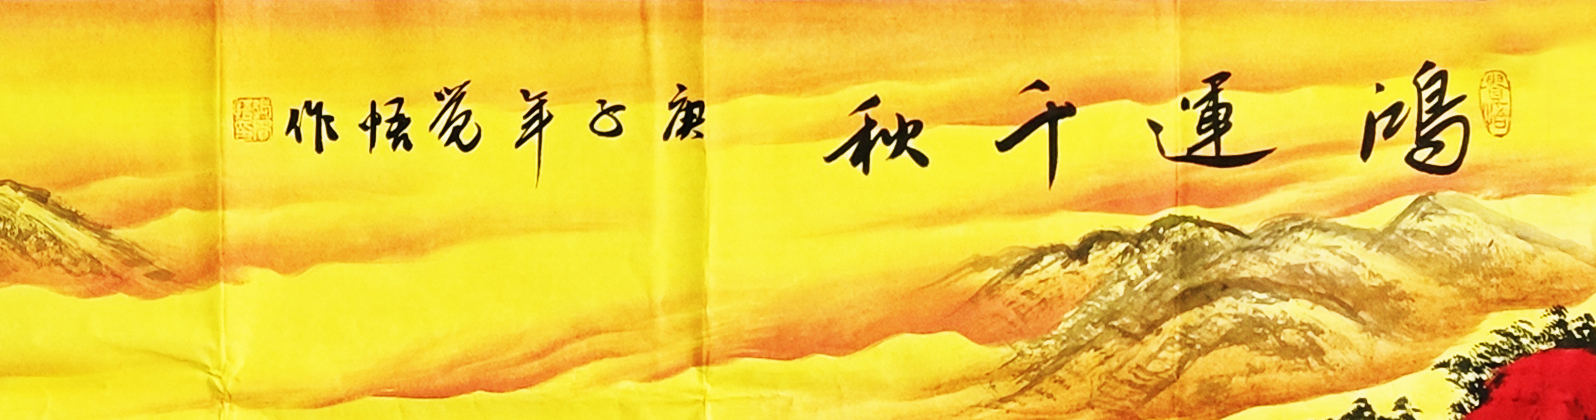 鴻運千秋
庚子年觉悟作